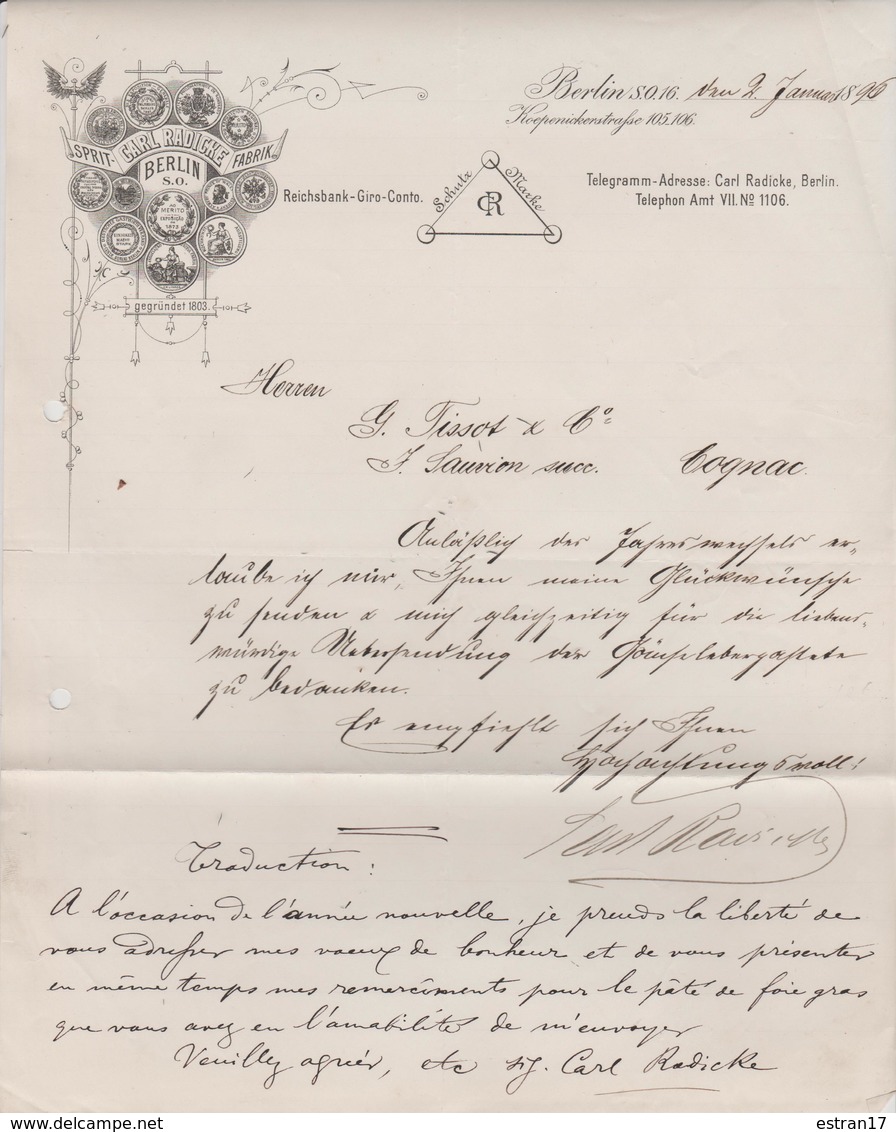 Berlin S.O.16. den 2. Januar 1896
Koepenickerstraſse 105.106.
SPRIT- CARL RADICKE FABRIK
BERLIN
S.O.
MERITO
1873
gegründet 1803.
Reichsbank-Giro-Conto.
Schutz Marke
CR
Telegramm-Adresse: Carl Radicke, Berlin.
Telephon Amt VII. No 1106.
Herren
G. Tissot & Co.
J. Sauvion succ. Cognac.
Anläßlich des Jahreswechsels er-
laube ich mir, Ihnen meine Glückwünsche
zu senden & mich gleichzeitig für die liebens-
würdige Uebersendung der Gänseleberpastete
zu bedanken.
Es empfiehlt sich Ihnen
Hochachtungsvoll!
Carl Radicke
Traduction:
A l'occasion de l'année nouvelle, je prends la liberté de
vous adresser mes voeux de bonheur et de vous présenter
en même temps mes remercîments pour le pâté de foie gras
que vous avez eu l'amabilité de m'envoyer
Veuillez agréer, etc sig. Carl Radicke
delcampe.net
estran17